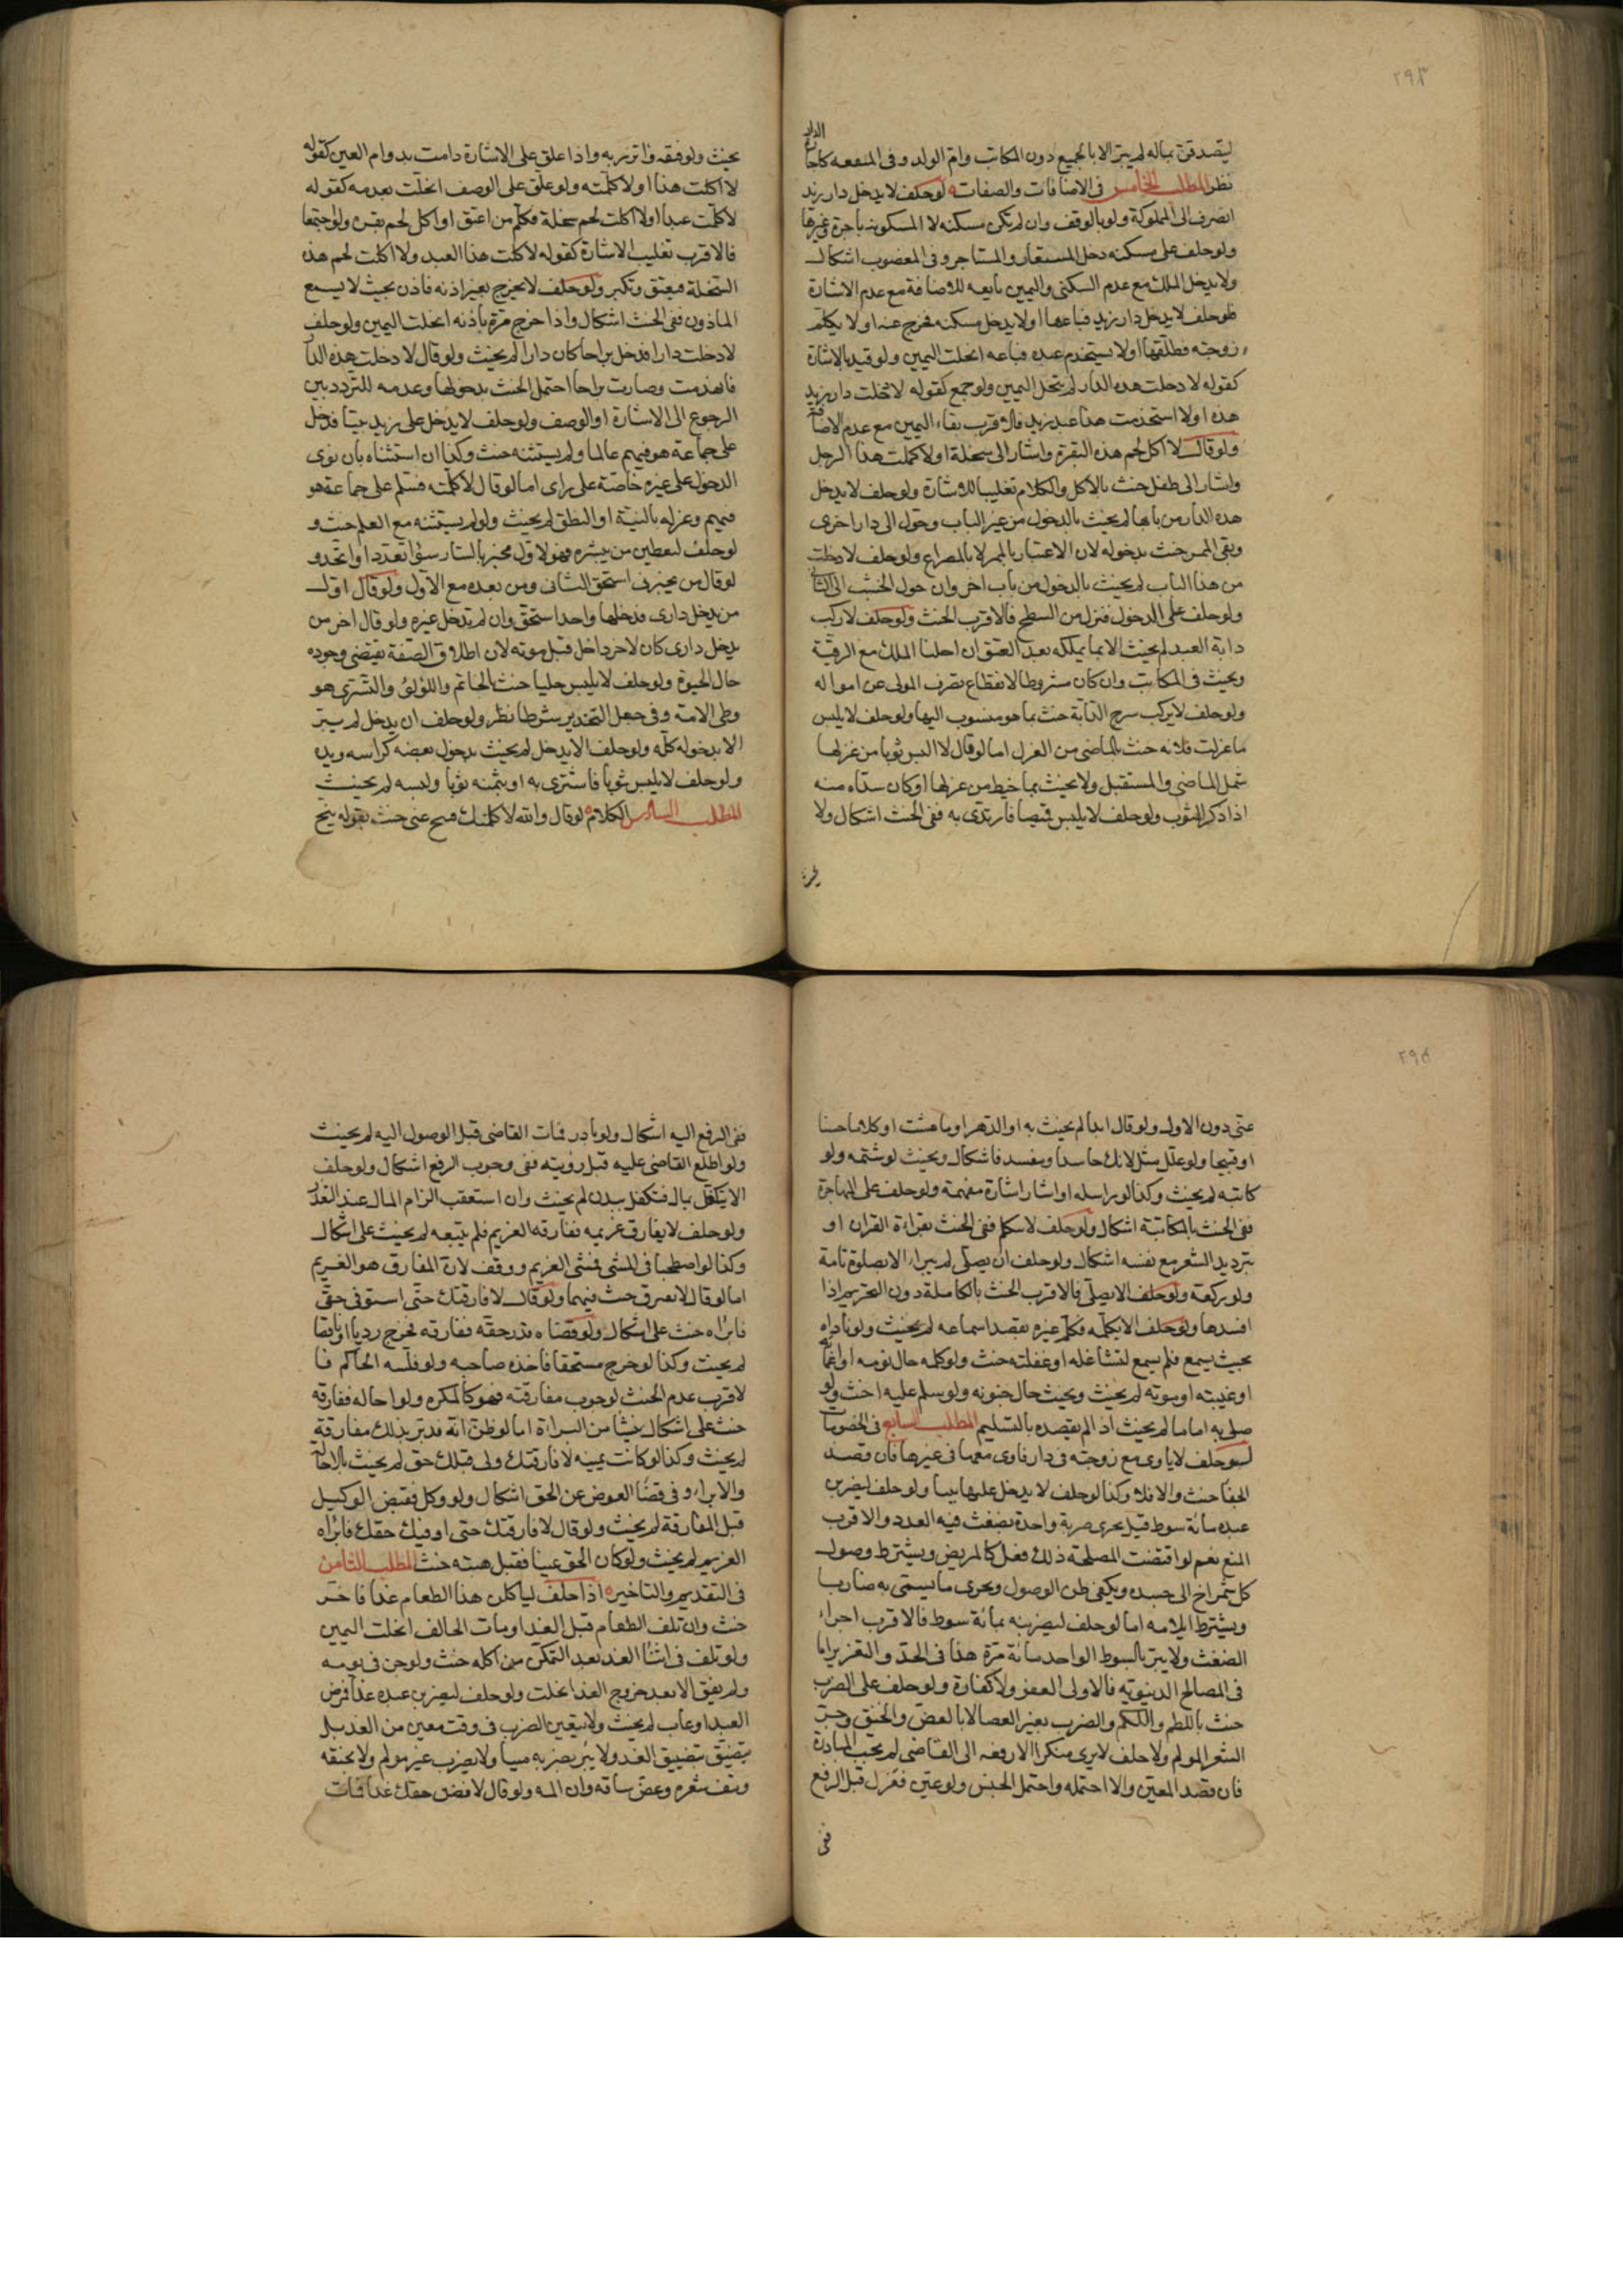 ٢٩٣
الدار
ليتصدقن بماله لم يبر الا بالجميع دون المكاتب وام الولد وفى المنفعه كاجارة
نظر المطلب الخامس فى الاضافات والصفات لو حلف لا يدخل دار زيد
انصرف الى المملوكة ولو بالوقف وان لم تكن مسكنه لا المسكونة باجرة وغيرها
ولو حلف على مسكنه دخل المستعار والمستاجر وفى المغصوب اشكال
ولا يدخل الملك مع عدم السكنى واليمين تابعه للاضافة مع عدم الاشارة
فلو حلف لا يدخل دار زيد فباعها او لا يدخل مسكنه فخرج عنه او لا يكلم
زوجته فطلقها او لا يستخدم عبده فباعه انحلت اليمين ولو قيد بالاشارة
كقوله لا دخلت هذه الدار لم ينحل اليمين ولو جمع كقوله لا دخلت دار زيد
هذه او لا استخدمت هذا عبد زيد فالاقرب بقاء اليمين مع عدم الاضافة
ولو قال لا اكل لحم هذه البقرة واشار الى سخلة او لا كلمت هذا الرجل
واشار الى طفل حنث بالاكل والكلام تغليبا للاشارة ولو حلف لا يدخل
هذه الدار من بابها لم يحنث بالدخول من غير الباب وحول الى دار اخرى
وبقى الممر حنث بدخوله لان الاعتبار بالممر لا بالمصراع ولو حلف لا دخلت
من هذا الباب لم يحنث بالدخول من باب اخر وان حول الخشب الى الثانى
ولو حلف على الدخول فنزل من السطح فالاقرب الحنث ولو حلف لا ركب
دابة العبد لم يحنث الا بما يملكه بعد العتق ان احلنا الملك مع الرقية
ويحنث فى المكاتب وان كان مشروطا لانقطاع تصرف المولى عن امواله
ولو حلف لا يركب سرج الدابة حنث بما هو منسوب اليها ولو حلف لا يلبس
ما غزلت فلانه حنث بالماضى من الغزل اما لو قال لا البس ثوبا من غزلها
شمل الماضى والمستقبل ولا يحنث بما خيط من غزلها او كان سداه منه
اذا ذكر الثوب ولو حلف لا يلبس قميصا فارتدى به ففى الحنث اشكال ولا
يحنث ولو فقه واتزر به واذا علق على الاشارة دامت بدوام العين كقوله
لا اكلت هذا او لا كلمته ولو علق على الوصف انحلت بعدمه كقوله
لا كلمت عبدا او لا اكلت لحم سخلة فكلم من اعتق او اكل لحم بقرة ولو اجتمعا
فالاقرب تغليب الاشارة كقوله لا كلت هذا العبد ولا اكلت لحم هذه
السخلة فيعتق وتكبر ولو حلف لا يخرج بغير اذنه فاذن بحيث لا يسمع
الماذون ففى الحنث اشكال واذا خرج مرة باذنه انحلت اليمين ولو حلف
لا دخلت دارا فدخل براحا كان دارا لم يحنث ولو قال لا دخلت هذه الدار
فانهدمت وصارت براحا احتمل الحنث بدخولها وعدمه للتردد بين
الرجوع الى الاشارة او الوصف ولو حلف لا يدخل على زيد بيتا فدخل
على جماعة هو فيهم عالما ولم يستثنه حنث وكذا ان استثناه بان نوى
الدخول على غيره خاصة على راى اما لو قال لا كلمته فسلم على جماعة هو
فيهم وعزله بالنية او النطق لم يحنث ولو لم يستثنه مع العلم حنث و
لو حلف ليعطين من يبشره فهو لاول مخبر بالسار سواء تعدد او اتحد و
لو قال من يخبرنى استحق الثانى ومن بعده مع الاول ولو قال اول
من يدخل دارى فدخلها واحد استحق وان لم يدخل غيره ولو قال اخر من
يدخل دارى كان لاخر داخل قبل موته لان اطلاق الصفة يقتضى وجوده
حال الحيوة ولو حلف لا يلبس حليا حنث بالخاتم واللؤلؤ والتسرى هو
وطى الامة وفى جعل التخدير شرطا نظر ولو حلف ان يدخل لم يبر
الا بدخوله كله ولو حلف الا يدخل لم يحنث بدخول بعضه كراسه ويده
ولو حلف لا يلبس ثوبا فاشترى به او بثمنه ثوبا ولبسه لم يحنث
المطلب السادس الكلام لو قال والله لا كلمتك فتنح عنى حنث بقوله تنح
٢٩٤
عنى دون الاول ولو قال ابدا لم يحنث به او الدهر او ما عشت او كلاما حسنا
او قبيحا ولو علل بمثل لانك حاسد او مفسد فاشكال ويحنث لو شتمه ولو
كاتبه لم يحنث وكذا لو راسله او اشار اشارة مفهمة ولو حلف على المهاجرة
ففى الحنث بالمكاتبة اشكال ولو حلف لا يتكلم ففى الحنث بقراءة القران او
بترديد الشعر مع نفسه اشكال ولو حلف ان يصلى لم يبرا الا بصلوة تامة
ولو ركعة ولو حلف الا يصلى فالاقرب الحنث بالكاملة دون التحريم اذا
افسدها ولو حلف الا يكلمه فكلم غيره بقصد اسماعه لم يحنث ولو ناداه
بحيث يسمع فلم يسمع لتشاغله او غفلته حنث ولو كلمه حال نومه او اغمائه
او غيبته او موته لم يحنث ويحنث حال جنونه ولو سلم عليه حنث ولو
صلى به اماما لم يحنث اذا لم يقصده بالتسليم المطلب السابع فى الخصومات
لو حلف لا ياوى مع زوجته فى دار فاوى معها فى غيرها فان قصد
الجفا حنث والا فلا وكذا لو حلف لا يدخل عليها بيتا ولو حلف ليضربن
عبده مائة سوط قيل يجزى ضربة واحدة بضغث فيه العدد والاقرب
المنع نعم لو اقتضت المصلحة ذلك فعل كالمريض ويشترط وصول
كل شمراخ الى جسده ويكفى ظن الوصول ويجزى ما يسمى به ضاربا
ويشترط ايلامه اما لو حلف ليضربنه بمائة سوط فالاقرب اجزاء
الضغث ولا يبر بالسوط الواحد مائة مرة هذا فى الحد والتعزير اما
فى المصالح الدنيوية فالاولى العفو ولا كفارة ولو حلف على الضرب
حنث باللطم واللكم والضرب بغير العصا لا بالعض والخنق وجز
الشعر المولم ولو حلف لا يرى منكرا الا رفعه الى القاضى لم يجب المبادرة
فان قصد المعين والا احتمله واحتمل الجنس ولو عين فعزل قبل الرفع
ففى
ففى الرفع اليه اشكال ولو بادر فمات القاضى قبل الوصول اليه لم يحنث
ولو اطلع القاضى عليه قبل رؤيته ففى وجوب الرفع اشكال ولو حلف
الا يتكفل بمال فتكفل ببدن لم يحنث وان استعقب الزام المال عند التعذر
ولو حلف لا يفارق غريمه ففارقه الغريم فلم يتبعه لم يحنث على اشكال
وكذا لو اصطحبا فى المشى فمشى الغريم ووقف لان المفارق هو الغريم
اما لو قال لا نفترق حنث فيهما ولو قال لا فارقتك حتى استوفى حقى
فابراه حنث على اشكال ولو قضاه قدر حقه ففارقه فخرج رديا او ناقصا
لم يحنث وكذا لو خرج مستحقا فاخذه صاحبه ولو فلسه الحاكم فا
لاقرب عدم الحنث لوجوب مفارقته فهو كالمكره ولو احاله ففارقه
حنث على اشكال ينشا من البراة اما لو ظن انه قد بر بذلك مفارقة
لم يحنث وكذا لو كانت يمينه لا فارقتك ولى قبلك حق لم يحنث بالاحالة
والابراء وفى قضاء العوض عن الحق اشكال ولو وكل فقبض الوكيل
قبل المفارقة لم يحنث ولو قال لا فارقتك حتى اوفيك حقك فابراه
الغريم لم يحنث ولو كان الحق عينا فقبل هبته حنث المطلب الثامن
فى التقديم والتاخير اذا حلف لياكلن هذا الطعام غدا فاخر
حنث وان تلف الطعام قبل الغد او مات الحالف انحلت اليمين
ولو تلف فى اثنا الغد بعد التمكن من اكله حنث ولو جن فى يومه
ولم يفق الا بعد خروج الغد انحلت ولو حلف ليضربن عبده غدا فمرض
العبد او غاب لم يحنث ولا يتعين الضرب فى وقت معين من الغد بل
يتضيق بتضييق الغد ولا يبر بضربه ميتا ولا بضرب غير مولم ولا بخنقه
ونتف شعره وعض ساقه وان المه ولو قال لاقضين حقك غدا فمات